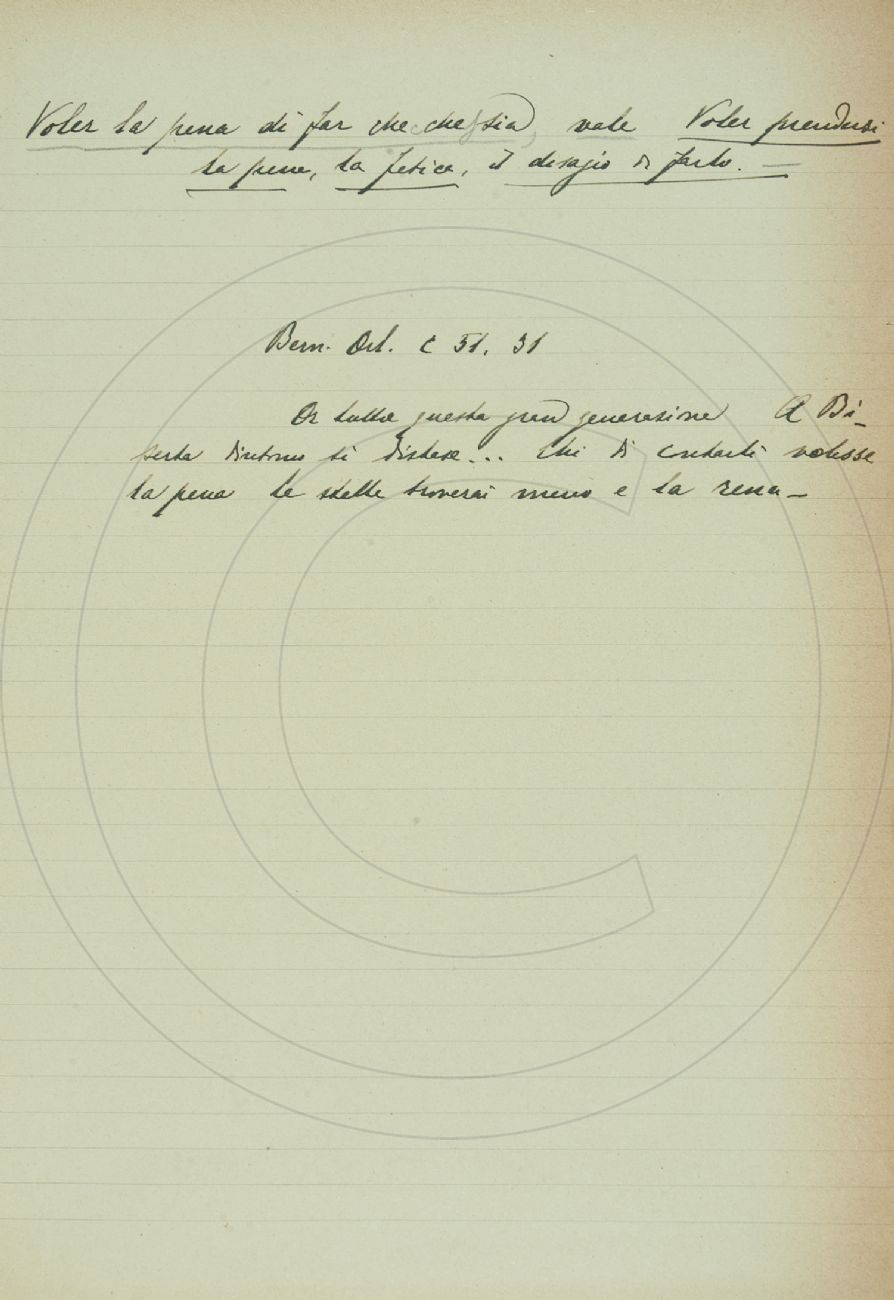 Voler la pena di far che che sia, vale Voler prendersi
la pena, la fatica, il disagio di farlo. —
Bern. Orl. C 51. 31
Or tutta questa gran generazione A Bi-
serta dintorno si distese... Chi di contarli volesse
la pena le stelle troverai meno e la rena —